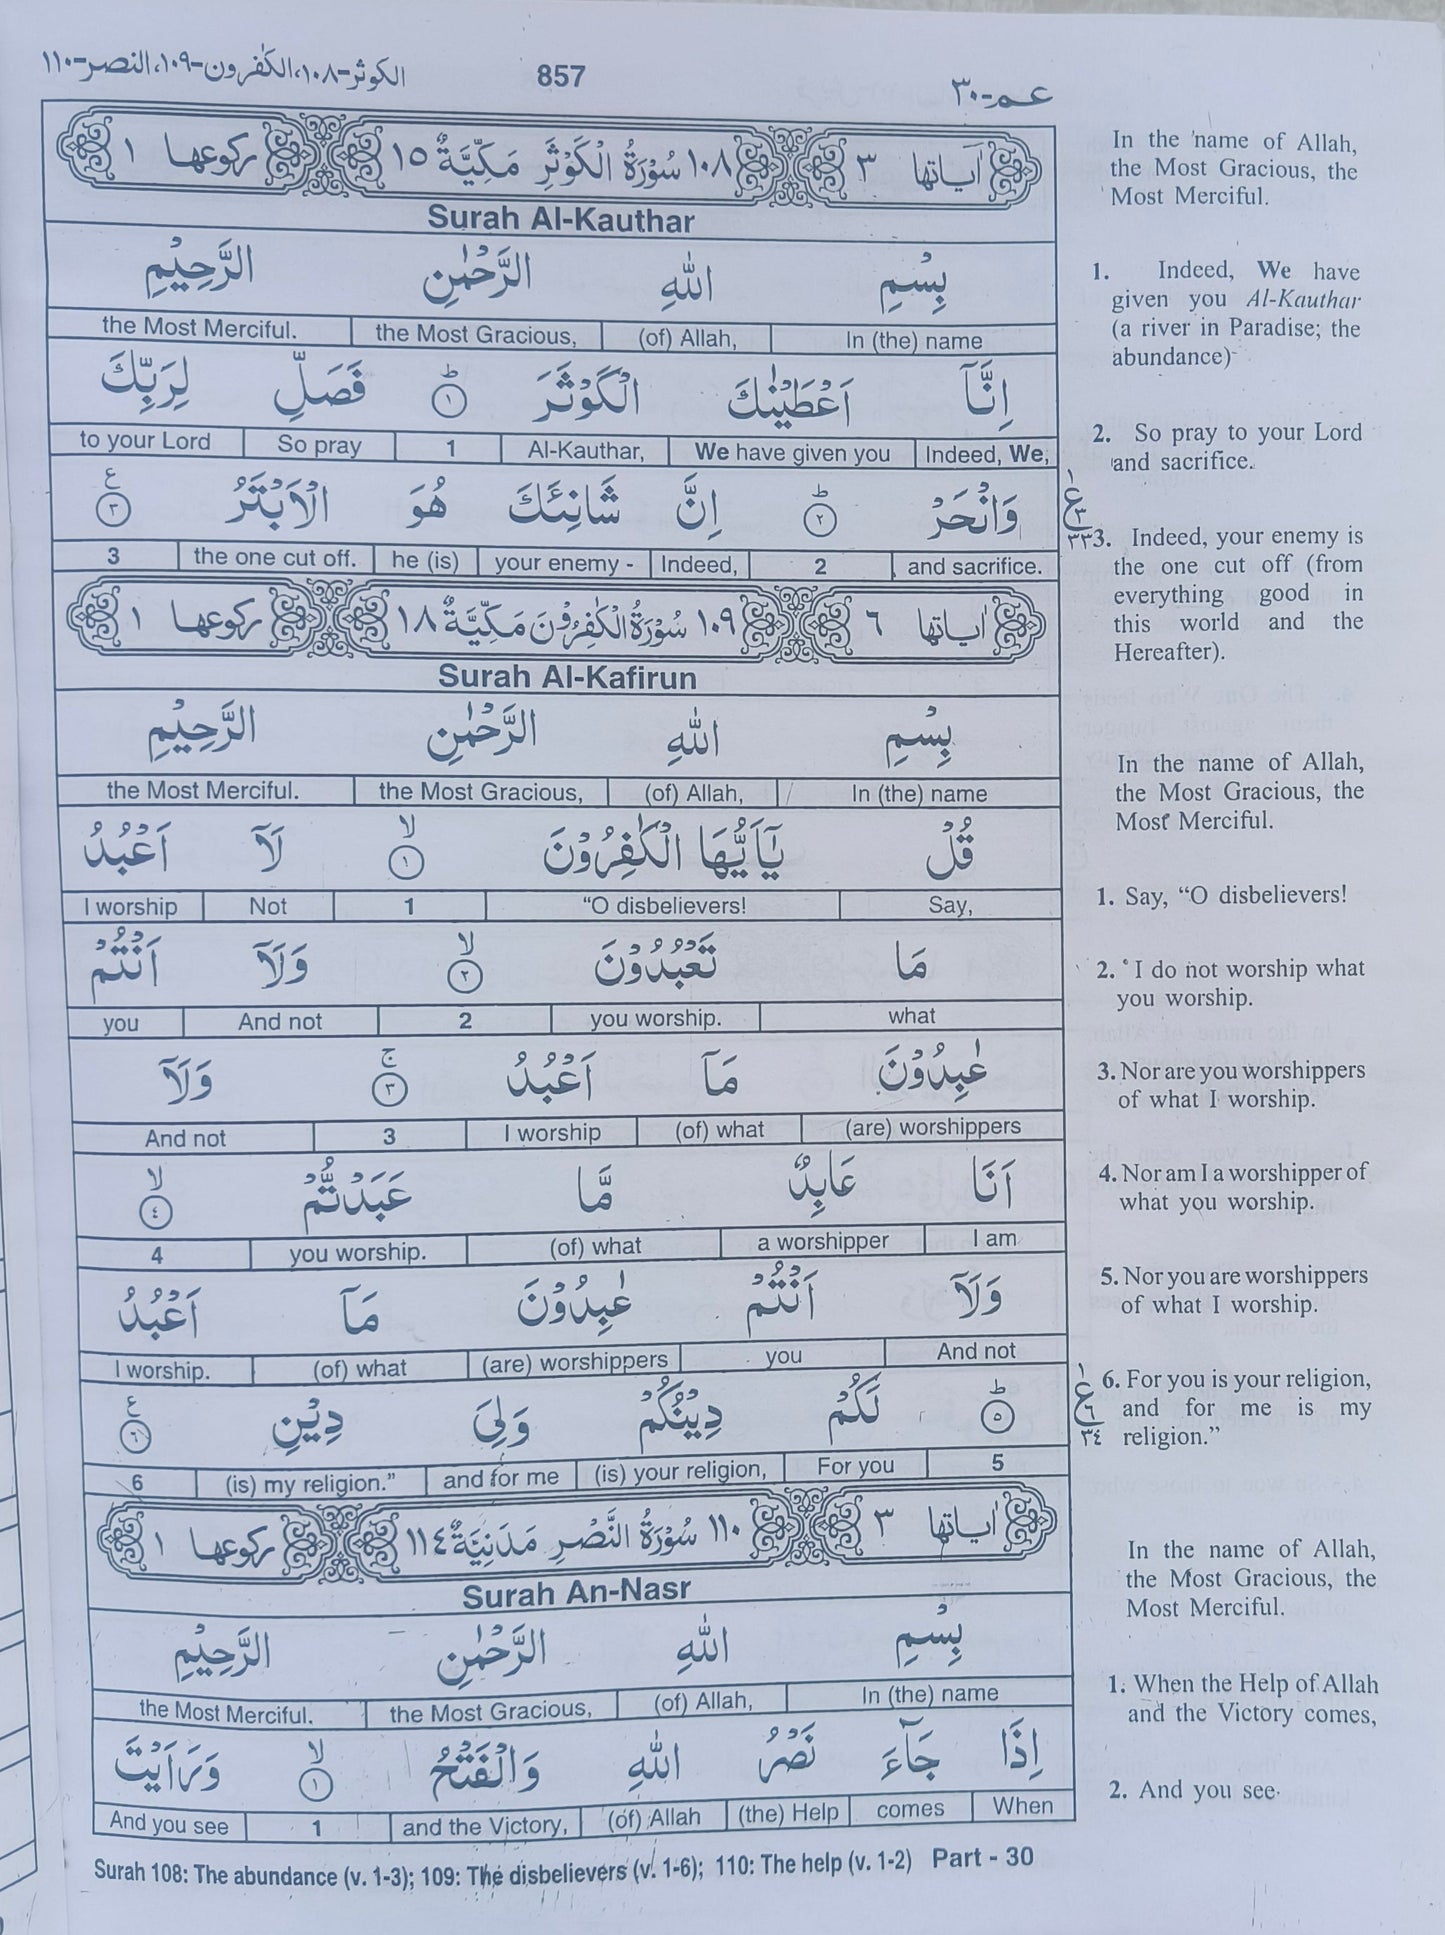 الكوثر-١٠٨، الكٰفرون-١٠٩، النصر-١١٠ 857 عـم-٣٠
اٰياتها ٣ ١٠٨ سُوْرَةُ الْكَوْثَرِ مَكِّيَّةٌ ١٥ ركوعها ١
Surah Al-Kauthar
بِسْمِ اللّٰهِ الرَّحْمٰنِ الرَّحِيْمِ
the Most Merciful. the Most Gracious, (of) Allah, In (the) name
اِنَّآ اَعْطَيْنٰكَ الْكَوْثَرَ ؕ ١ فَصَلِّ لِرَبِّكَ
to your Lord So pray 1 Al-Kauthar, We have given you Indeed, We,
وَانْحَرْ ؕ ٢ اِنَّ شَانِئَكَ هُوَ الْاَبْتَرُ ع ٣
3 the one cut off. he (is) your enemy - Indeed, 2 and sacrifice.
اٰياتها ٦ ١٠٩ سُوْرَةُ الْكٰفِرُوْنَ مَكِّيَّةٌ ١٨ ركوعها ١
Surah Al-Kafirun
بِسْمِ اللّٰهِ الرَّحْمٰنِ الرَّحِيْمِ
the Most Merciful. the Most Gracious, (of) Allah, In (the) name
قُلْ يٰٓاَيُّهَا الْكٰفِرُوْنَ ۙ ١ لَآ اَعْبُدُ
I worship Not 1 “O disbelievers! Say,
مَا تَعْبُدُوْنَ ۙ ٢ وَلَآ اَنْتُمْ
you And not 2 you worship. what
عٰبِدُوْنَ مَآ اَعْبُدُ ۚ ٣ وَلَآ
And not 3 I worship (of) what (are) worshippers
اَنَا عَابِدٌ مَّا عَبَدْتُّمْ ۙ ٤
4 you worship. (of) what a worshipper I am
وَلَآ اَنْتُمْ عٰبِدُوْنَ مَآ اَعْبُدُ
I worship. (of) what (are) worshippers you And not
ؕ ٥ لَكُمْ دِيْنُكُمْ وَلِيَ دِيْنِ ع ٦
6 (is) my religion.” and for me (is) your religion, For you 5
اٰياتها ٣ ١١٠ سُوْرَةُ النَّصْرِ مَدَنِيَّةٌ ١١٤ ركوعها ١
Surah An-Nasr
بِسْمِ اللّٰهِ الرَّحْمٰنِ الرَّحِيْمِ
the Most Merciful. the Most Gracious, (of) Allah, In (the) name
اِذَا جَآءَ نَصْرُ اللّٰهِ وَالْفَتْحُ ۙ ١ وَرَاَيْتَ
And you see 1 and the Victory, (of) Allah (the) Help comes When
Surah 108: The abundance (v. 1-3); 109: The disbelievers (v. 1-6); 110: The help (v. 1-2) Part - 30
In the name of Allah,
the Most Gracious, the
Most Merciful.
1. Indeed, We have
given you Al-Kauthar
(a river in Paradise; the
abundance)
2. So pray to your Lord
and sacrifice.
١
ع
٣
٣٣
3. Indeed, your enemy is
the one cut off (from
everything good in
this world and the
Hereafter).
In the name of Allah,
the Most Gracious, the
Most Merciful.
1. Say, “O disbelievers!
2. I do not worship what
you worship.
3. Nor are you worshippers
of what I worship.
4. Nor am I a worshipper of
what you worship.
5. Nor you are worshippers
of what I worship.
١
ع
٦
٣٤
6. For you is your religion,
and for me is my
religion.”
In the name of Allah,
the Most Gracious, the
Most Merciful.
1. When the Help of Allah
and the Victory comes,
2. And you see